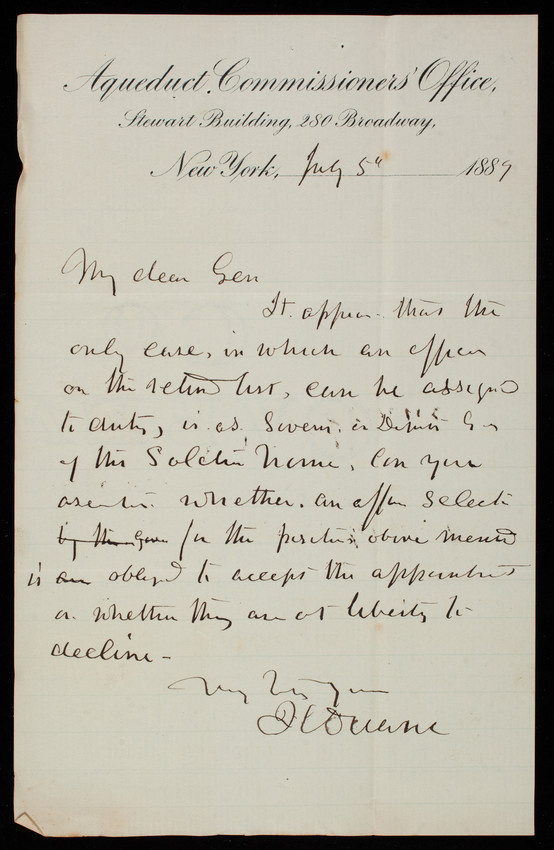 Aqueduct Commissioners' Office,
Stewart Building, 280 Broadway,
New York, July 5th 1889
My dear Gen
It appears that the
only case, in which an officer
on the retired list, can be assigned
to duty, is as Govern. or Deputy Gov
of the Soldiers Home, Can you
ascertain whether an officer selected
by the Gove for the position above mentioned
is an obliged to accept the appointment
or whether they are at liberty to
decline -
Very truly yours
J C Duane